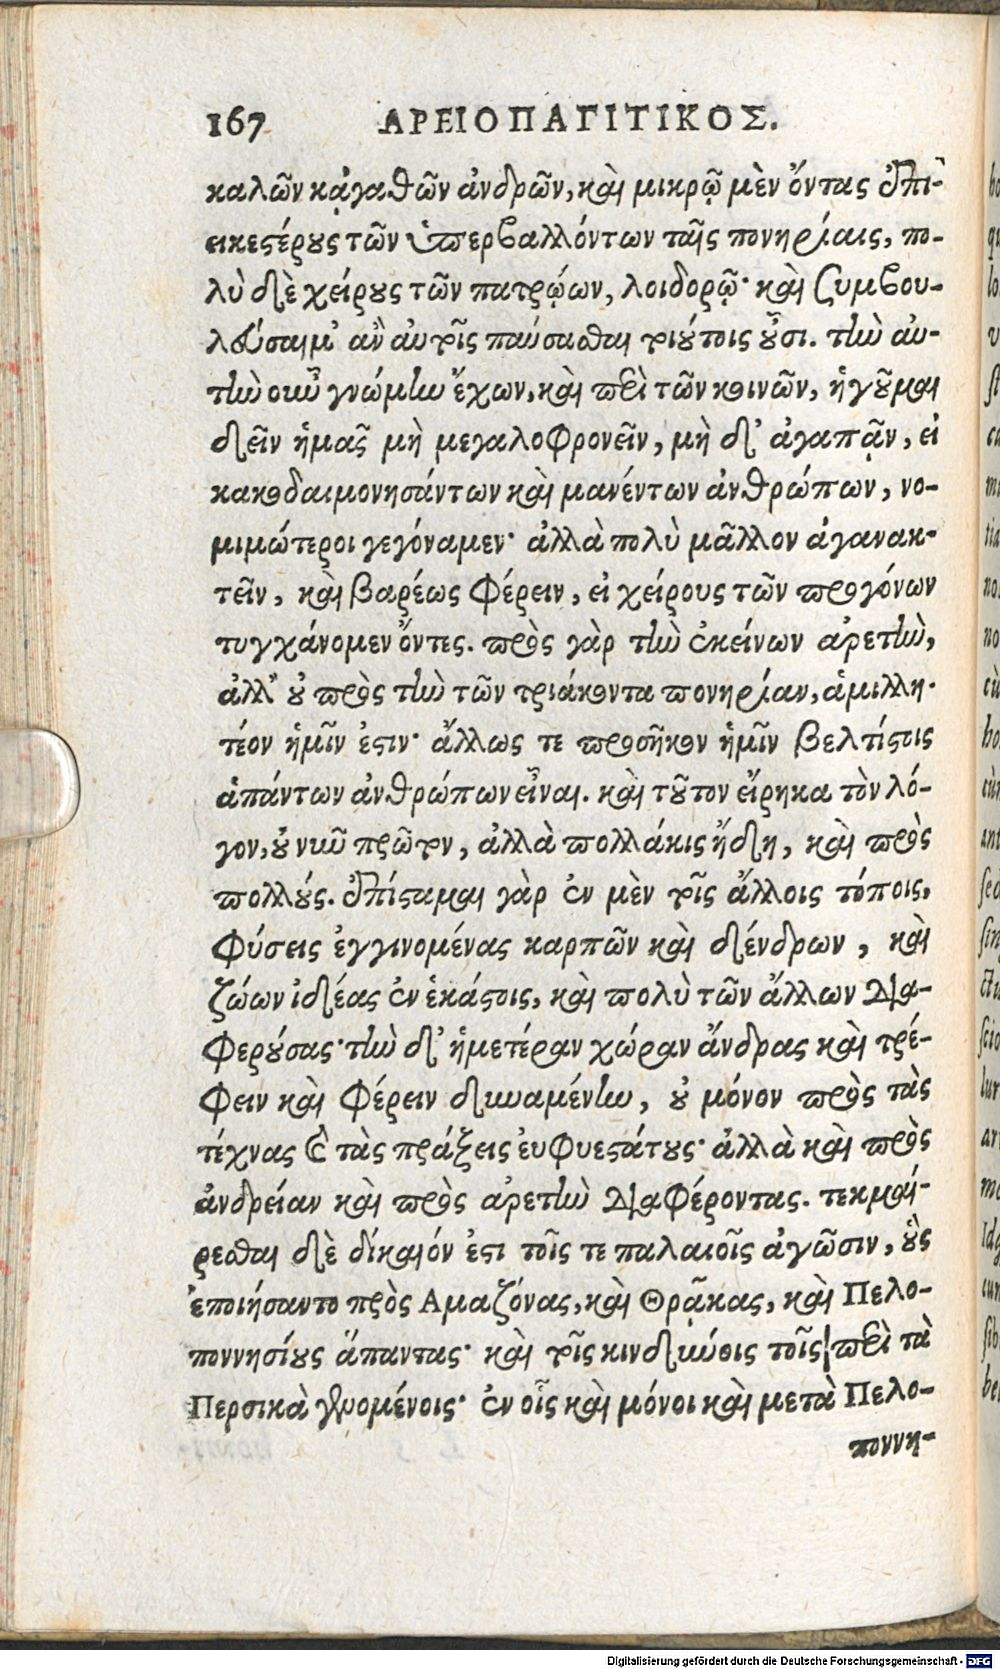 167 ΑΡΕΙΟΠΑΓΙΤΙΚΟΣ.
καλῶν κᾀγαθῶν ἀνδρῶν, καὶ μικρῷ μὲν ὄντας ἐπι-
εικεστέρους τῶν ὑπερβαλλόντων ταῖς πονηρίαις, πο-
λὺ δὲ χείρους τῶν πατρῴων, λοιδορῷ· καὶ συμβου-
λεύσαιμ' ἂν αὐτοῖς παύσασθαι τοιούτοις οὖσι. τὴν αὐ-
τὴν οὖν γνώμην ἔχων, καὶ περὶ τῶν κοινῶν, ἡγοῦμαι
δεῖν ἡμᾶς μὴ μεγαλοφρονεῖν, μὴ δ' ἀγαπᾷν, εἰ
κακοδαιμονησάντων καὶ μανέντων ἀνθρώπων, νο-
μιμώτεροι γεγόναμεν· ἀλλὰ πολὺ μᾶλλον ἀγανακ-
τεῖν, καὶ βαρέως φέρειν, εἰ χείρους τῶν προγόνων
τυγχάνομεν ὄντες. πρὸς γὰρ τὴν ἐκείνων ἀρετὴν,
ἀλλ' οὐ πρὸς τὴν τῶν τριάκοντα πονηρίαν, ἁμιλλη-
τέον ἡμῖν ἐστιν· ἄλλως τε προσῆκον ἡμῖν βελτίστοις
ἁπάντων ἀνθρώπων εἶναι. καὶ τοῦτον εἴρηκα τὸν λό-
γον, οὐ νῦν πρῶτον, ἀλλὰ πολλάκις ἤδη, καὶ πρὸς
πολλούς. ἐπίσταμαι γὰρ ἐν μὲν τοῖς ἄλλοις τόποις,
φύσεις ἐγγινομένας καρπῶν καὶ δένδρων, καὶ
ζώων ἰδέας ἐν ἑκάστοις, καὶ πολὺ τῶν ἄλλων δια-
φερούσας· τὴν δ' ἡμετέραν χώραν ἄνδρας καὶ τρέ-
φειν καὶ φέρειν δυναμένην, οὐ μόνον πρὸς τὰς
τέχνας καὶ τὰς πράξεις εὐφυεστάτους· ἀλλὰ καὶ πρὸς
ἀνδρείαν καὶ πρὸς ἀρετὴν διαφέροντας. τεκμαί-
ρεσθαι δὲ δίκαιόν ἐστι τοῖς τε παλαιοῖς ἀγῶσιν, οὓς
ἐποιήσαντο πρὸς Αμαζόνας, καὶ Θρᾷκας, καὶ Πελο-
ποννησίους ἅπαντας· καὶ τοῖς κινδύνοις τοῖς περὶ τὰ
Περσικὰ γενομένοις· ἐν οἷς καὶ μόνοι καὶ μετὰ Πελο-
ποννη-
Digitalisierung gefördert durch die Deutsche Forschungsgemeinschaft - DFG